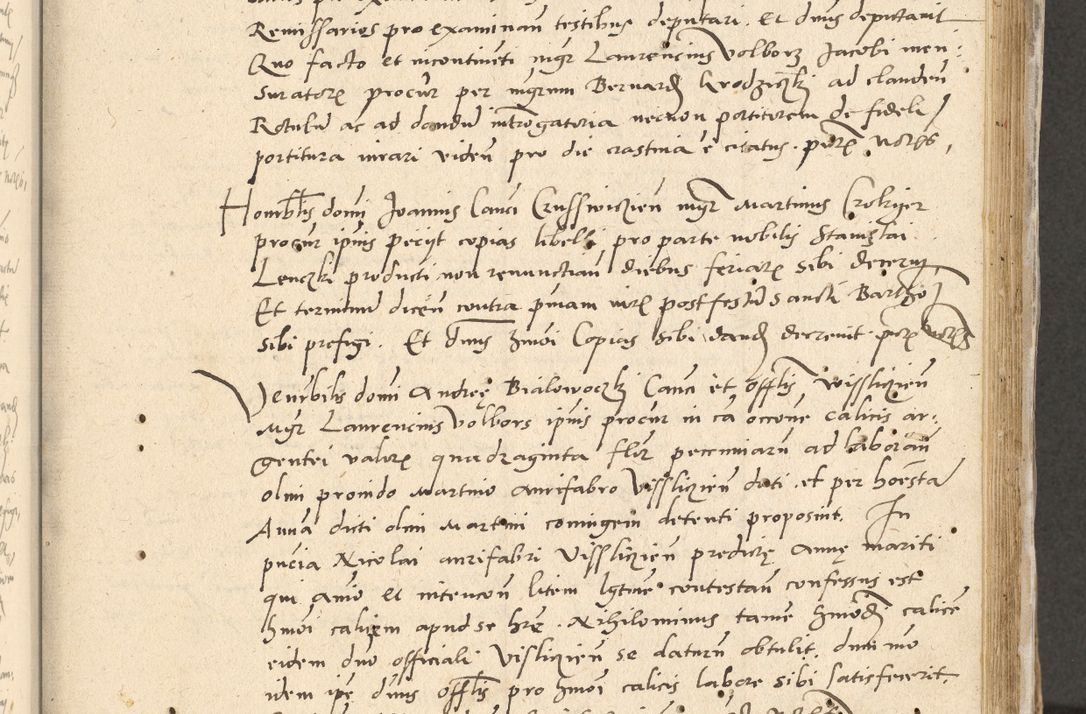 Remissarios pro examinan testibus deputari. Et dnus deputavit
Quo facto et incontineti mgr Laurencius Volborz Jacobi men-
suratoris procur per mgrum Bernard Grodziczki ad clauden
Rotulu ac ad dandu introgatoria necnon portitorem de fideli
portitura iurari viden pro die crastina e citatus. pntibus
Honorbilis domi Joannis Canci Crusswiczien mgr Martinus Crokyer
procur ipius peciyt copias libelli pro parte nobilis Stanislai
Lenczki producti non renunctian diebus feriarum sibi decerni
Et terminu dicen contra pmam iuris post festu Sancti Bartho
sibi prefigi. Et dnus hmoi Copias sibi dand decrevit.
Venrbilis domi Andreę Bialowoczki Canci et offlis Visslicien
Mgr Laurencius Volbors ipius procur in ca occone calicis ar-
gentei valoris quadraginta flor pecuniarum ad laboran
olim provido Martino aurifabro Visslicien dati et per honesta
Anna dicti olim Martini coniugem detenti proposuit. In
pncia Nicolai aurifabri Visslicien predictę Annę mariti
qui animo et intencon litem lgtime contestan confessus est
hmoi calicem apud se hre. Nihilominus tame hmodi calice
eidem dno officiali Visslicien se daturu obtulit. dum mo
idem ipe dnus offlis pro hmoi calicis labore sibi satisfecerit.